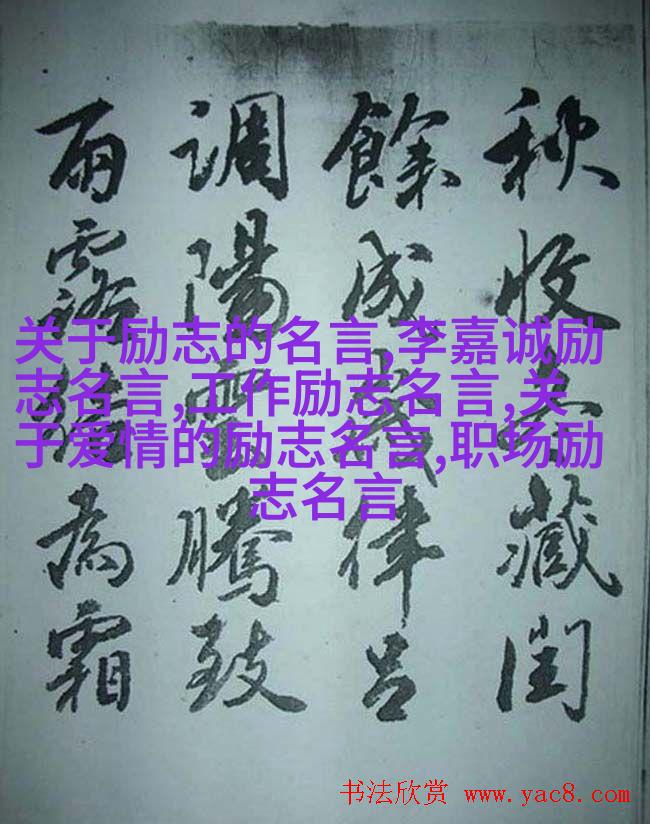 秋收冬藏閏
餘成歲律呂
調陽雲騰致
雨露結為霜
关于励志的名言,李嘉诚励
志名言,工作励志名言,关
于爱情的励志名言,职场励
志名言
书法欣赏 www.yac8.com